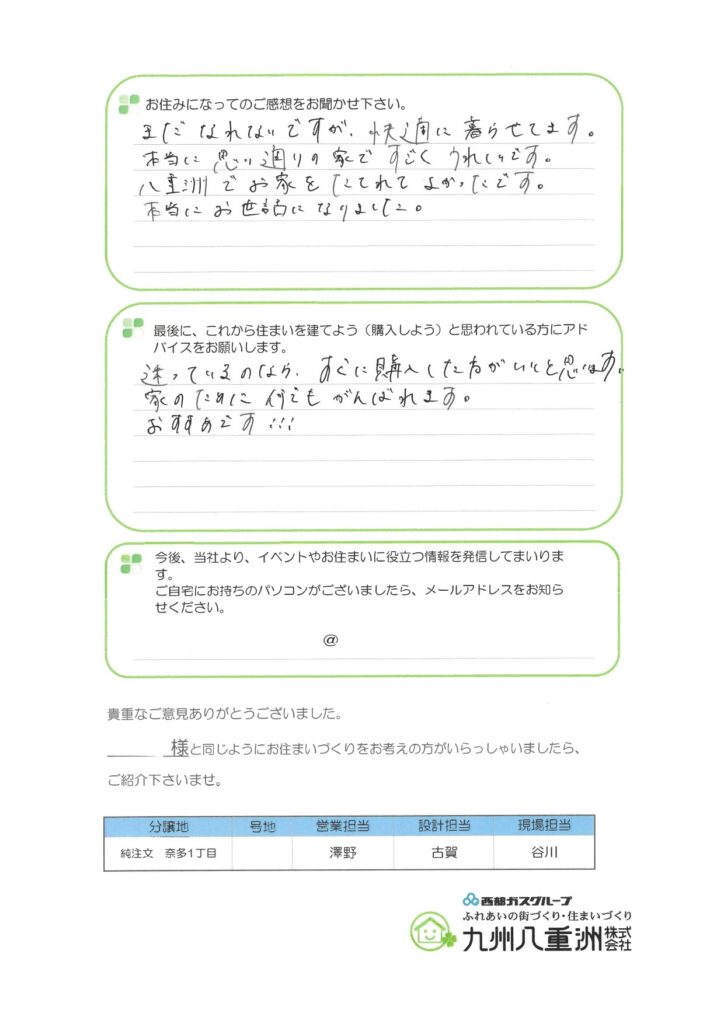 お住みになってのご感想をお聞かせ下さい。
まだなれないですが、快適に暮らせてます。
本当に思い通りの家ですごくうれしいです。
八重洲でお家をたてれてよかったです。
本当にお世話になりました。
最後に、これから住まいを建てよう（購入しよう）と思われている方にアド
バイスをお願いします。
迷っているのなら、すぐに購入した方がいいと思います。
家のために何でもがんばれます。
おすすめです!!!
今後、当社より、イベントやお住まいに役立つ情報を発信してまいりま
す。
ご自宅にお持ちのパソコンがございましたら、メールアドレスをお知ら
せください。
@
貴重なご意見ありがとうございました。
様と同じようにお住まいづくりをお考えの方がいらっしゃいましたら、
ご紹介下さいませ。
分譲地 号地 営業担当 設計担当 現場担当
純注文 奈多1丁目 澤野 古賀 谷川
西部ガスグループ
ふれあいの街づくり・住まいづくり
九州八重洲株式会社